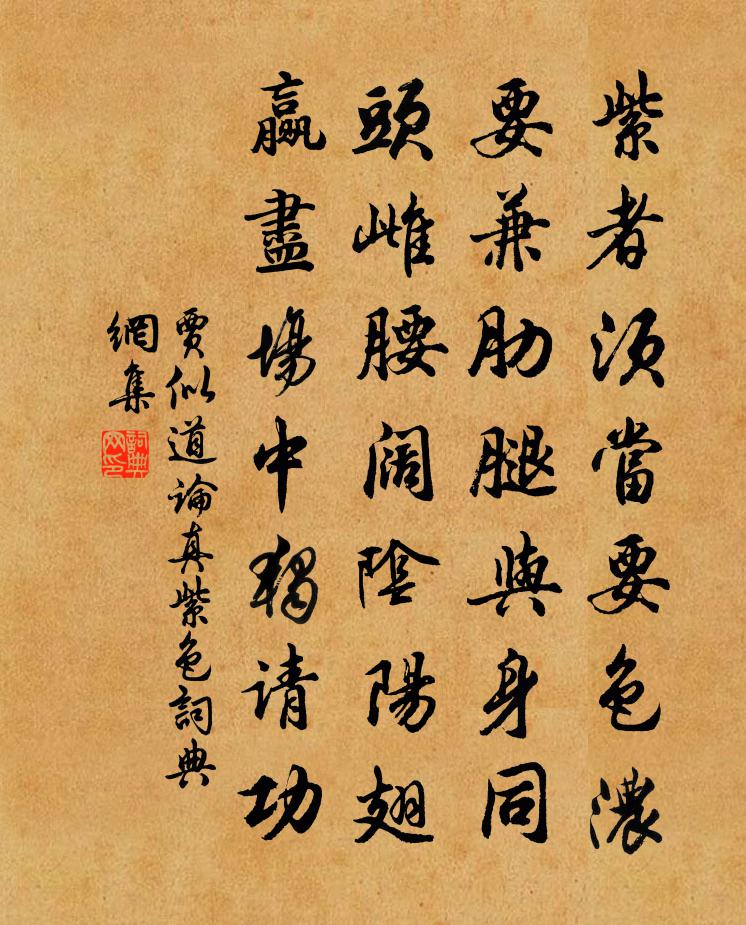 紫者須當要色濃
要兼肋腿與身同
頭雌腰闊陰陽翅
贏盡場中獨请功
賈似道論真紫色詞典
網集
詞典網印